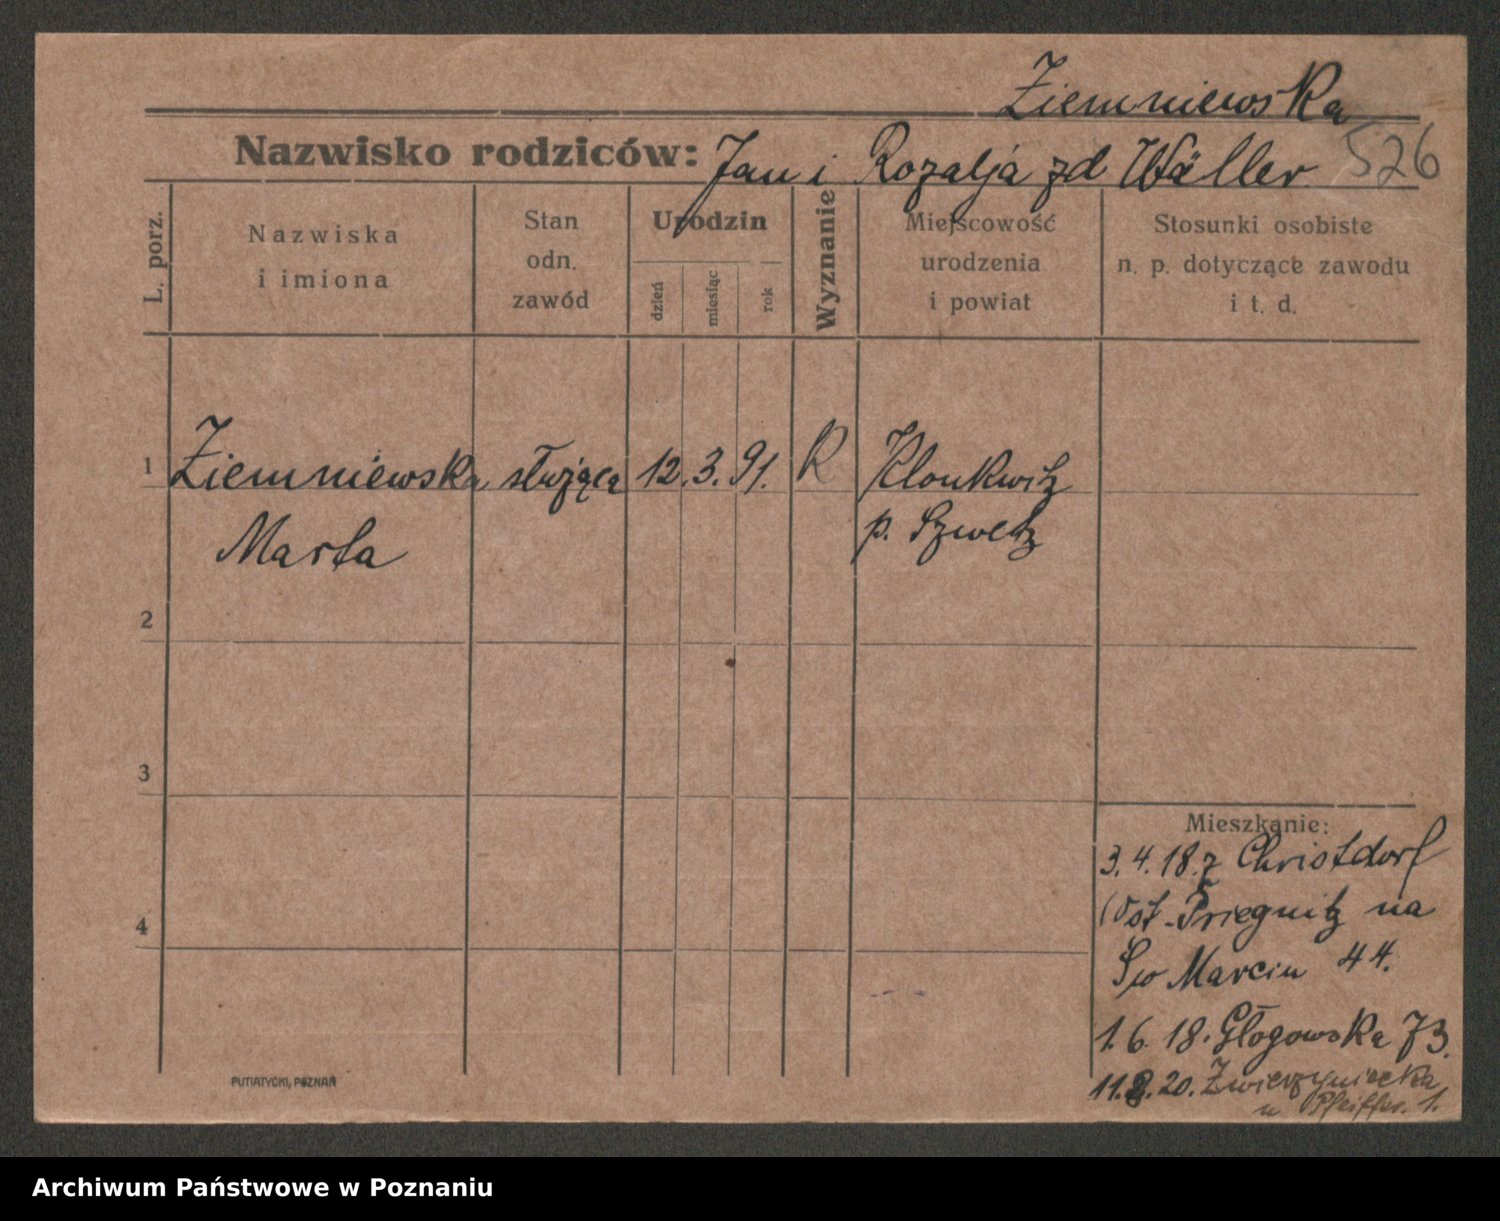 Ziemniewska
Nazwisko rodziców: Jan i Rozalja zd Wäller. 526
L. porz.
Nazwiska
i imiona
Stan
odn.
zawód
Urodzin
dzień
miesiąc
rok
Wyznanie
Miejscowość
urodzenia
i powiat
Stosunki osobiste
n. p. dotyczące zawodu
i t. d.
1 Ziemniewska służąca 12. 3. 91. R Klonkwitz
Marta p. Szwetz
2
3
4
Mieszkanie:
3. 4. 18. z Christdorf
Ost-Priegnitz na
Św Marcin 44.
1. 6. 18. Głogowska 73.
11. 8. 20. Zwierzyniecka
u Pfeiffer. 1.
PUTIATYCKI, POZNAŃ
Archiwum Państwowe w Poznaniu